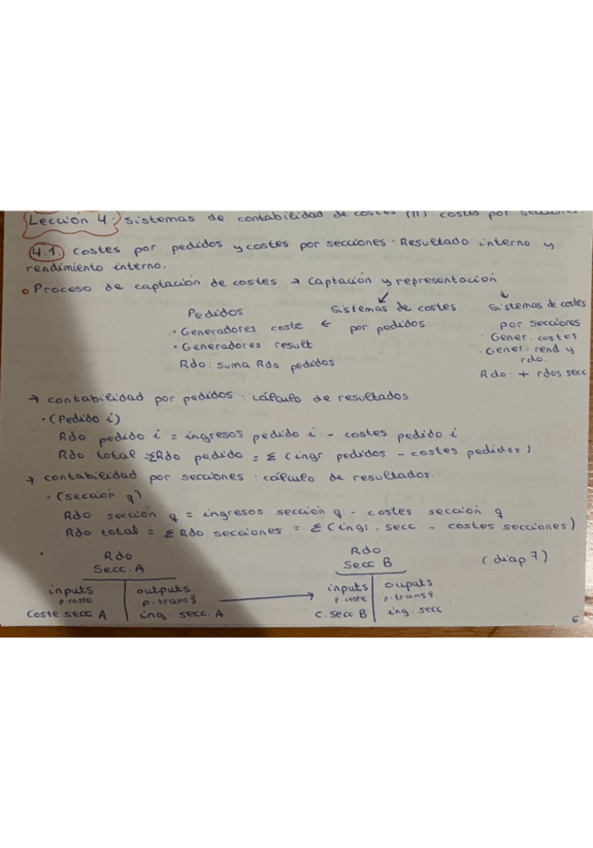 Lección 4: sistemas de contabilidad de costes (II): costes por secciones.
4.1. Costes por pedidos y costes por secciones. Resultado interno y
rendimiento interno.
Proceso de captación de costes → Captación y representación
Pedidos
· Generadores coste ←
· Generadores result
Rdo: suma Rdo pedidos
Sistemas de costes
por pedidos
Sistemas de costes
por secciones
· Gener. costes
· Gener. rend y
rdo.
Rdo: + rdos secc
→ contabilidad por pedidos: cálculo de resultados
· (Pedido i)
Rdo pedido i = ingresos pedido i - costes pedido i
Rdo total = ΣRdo pedido = Σ (ingr pedidos - costes pedidos)
→ contabilidad por secciones: cálculo de resultados.
· (sección q)
Rdo sección q = ingresos sección q - costes sección q
Rdo total = Σ Rdo secciones = Σ (ingr. secc - costes secciones)
· Rdo
Secc. A
inputs outputs
p. coste p. transf
Coste secc A ing. secc. A
Rdo
Secc B
inputs ouputs
p. coste p. transf
C. secc B ing. secc
(diap 7)
6